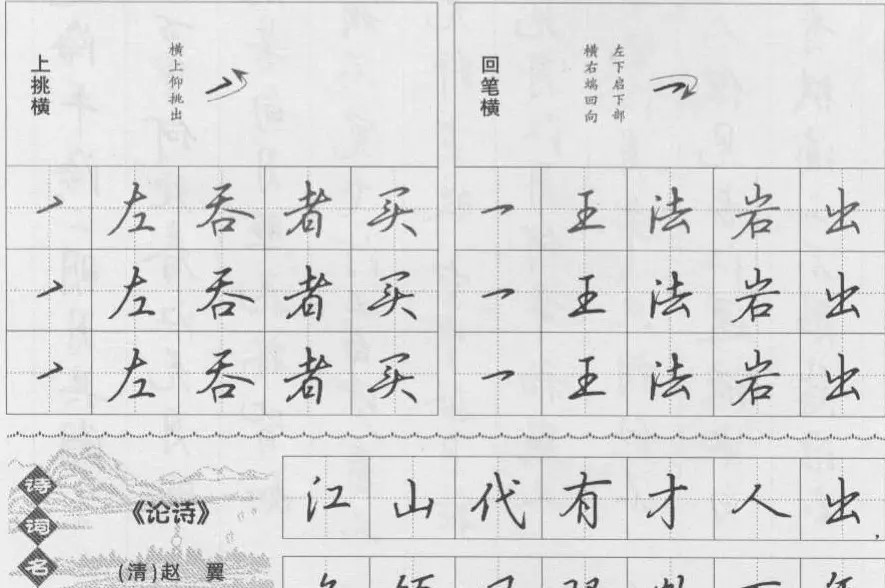 上挑横
横上仰挑出
回笔横
左下启下部
横右端回向
左 吞 者 买
一 王 法 岩 出
左 吞 者 买
一 王 法 岩 出
左 吞 者 买
一 王 法 岩 出
诗词名
《论诗》
(清)赵 翼
江 山 代 有 才 人 出,